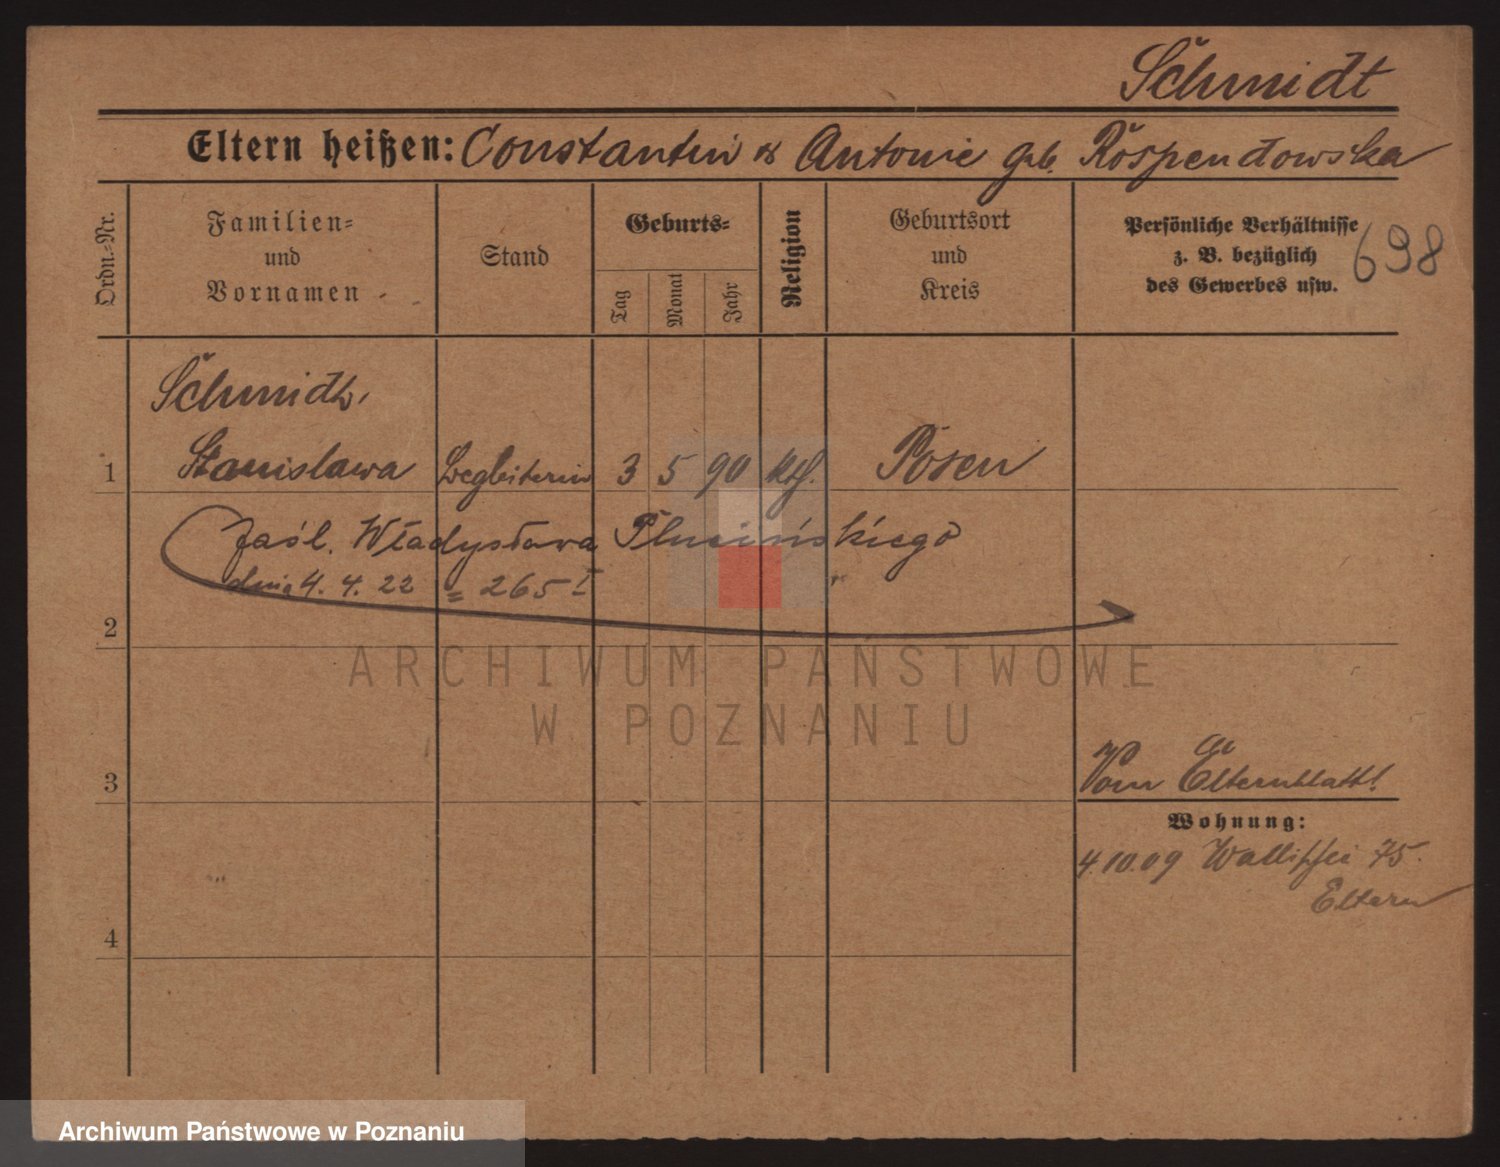 Schmidt
Eltern heißen: Constantin & Antonie geb. Rospendowska
Ordn.-Nr.
Familien-
und
Vornamen
Stand
Geburts-
Tag
Monat
Jahr
Religion
Geburtsort
und
Kreis
Persönliche Verhältnisse
z. B. bezüglich
des Gewerbes usw.
698
Schmidt,
1 Stanislawa 3 5 90 kth. Posen
zaśl. Władysława Plucińskiego
dnia 4. 4. 22 = 265 I
2
3
Vom Elternblatt!
Wohnung:
4.10.09 Wallischei 75.
Eltern
4
ARCHIWUM PAŃSTWOWE
W POZNANIU
Archiwum Państwowe w Poznaniu